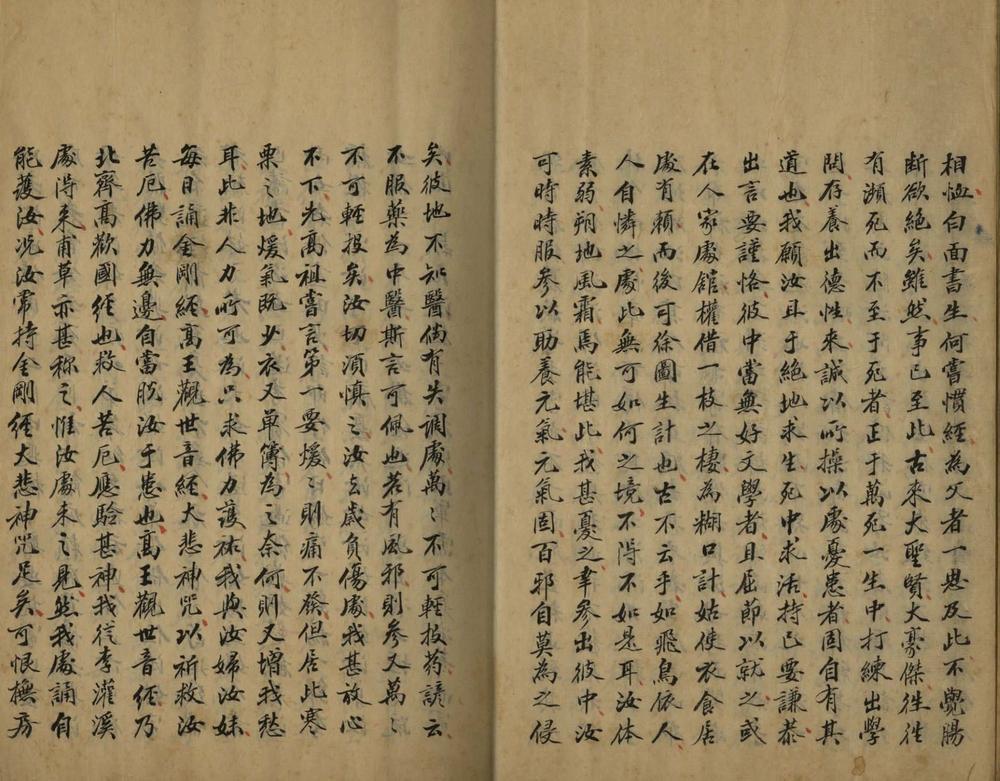 相恤白面書生何嘗慣經為父者一思及此不覺腸
斷欲絕矣雖然事已至此古來大聖賢大豪傑徃徃
有瀕死而不至于死者正于萬死一生中打練出學
問存養出德性來誠以所操以處憂患者固自有其
道也我願汝且于絕地求生死中求活持己要謙恭
出言要謹恪彼中當無好文學者且屈節以就之或
在人家處館權借一枝之棲為糊口計姑使衣食居
處有賴而後可徐圖生計也古不云乎如飛鳥依人
人自憐之處此無可如何之境不得不如是耳汝体
素弱朔地風霜焉能堪此我甚憂之幸參出彼中汝
可時時服參以助養元氣元氣固百邪自莫為之侵
矣彼地不知醫倘有失調處萬〻不可輕投药諺云
不服藥為中醫斯言可佩也若有風邪則參又萬〻
不可輕投矣汝切須慎之汝去歲負傷處我甚放心
不下先高祖嘗言第一要煖〻則痛不發但居此寒
栗之地煖氣既少衣又单簿為之奈何則又增我愁
耳此非人力所可為只求佛力護祐我與汝婦汝妹
每日誦金剛經高王觀世音經大悲神咒以祈救汝
苦厄佛力無邊自當脫汝于患也高王觀世音經乃
北齊高歡國經也救人苦厄應驗甚神我從李灌溪
處得來甫草亦甚称之惟汝處未之見然我處誦自
能護汝况汝常持金剛經大悲神咒足矣可恨撫房